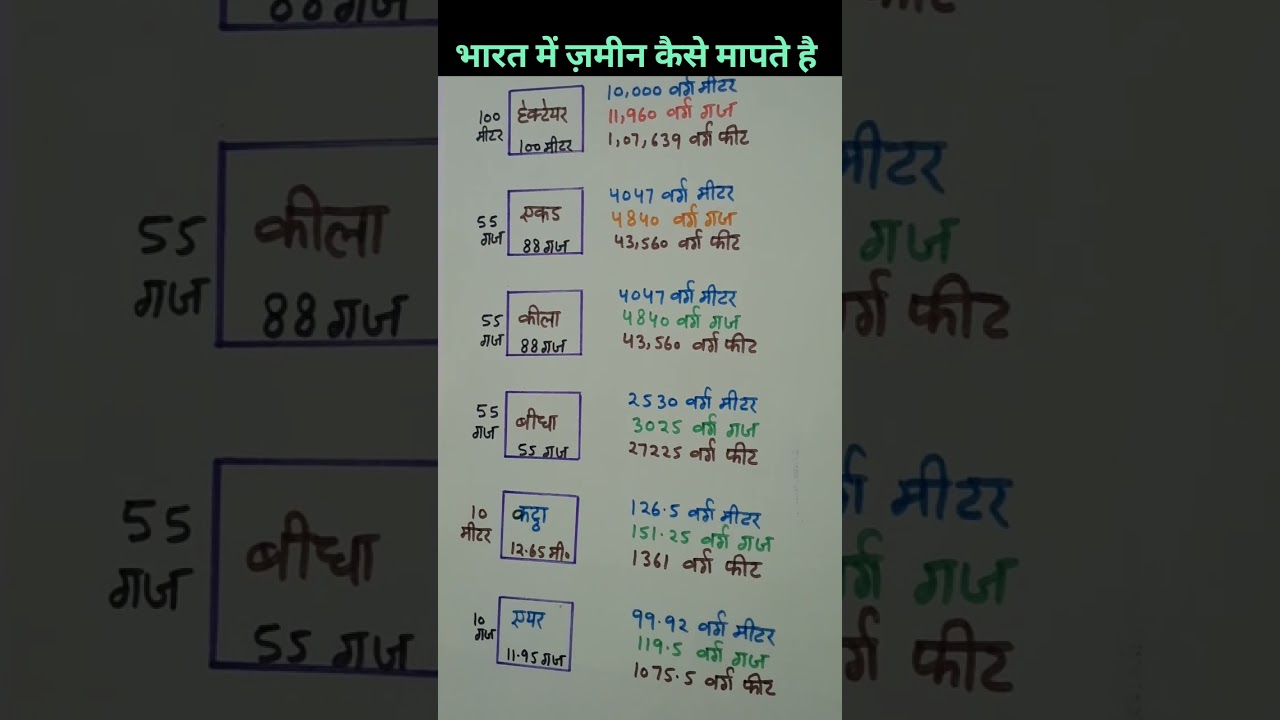 भारत में ज़मीन कैसे मापते है
100 मीटर
हेक्टेयर
100 मीटर
10,000 वर्ग मीटर
11,960 वर्ग गज
1,07,639 वर्ग फीट
55 गज
एकड
88 गज
4047 वर्ग मीटर
4840 वर्ग गज
43,560 वर्ग फीट
55 गज
कीला
88 गज
4047 वर्ग मीटर
4840 वर्ग गज
43,560 वर्ग फीट
55 गज
बीघा
55 गज
2530 वर्ग मीटर
3025 वर्ग गज
27225 वर्ग फीट
10 मीटर
कट्ठा
12.65 मी०
126.5 वर्ग मीटर
151.25 वर्ग गज
1361 वर्ग फीट
10 गज
एयर
11.95 गज
99.92 वर्ग मीटर
119.5 वर्ग गज
1075.5 वर्ग फीट
55
गज
कीला
88 गज
मीटर
गज
वर्ग फीट
55
गज
बीघा
55 गज
मीटर
वर्ग गज
वर्ग फीट